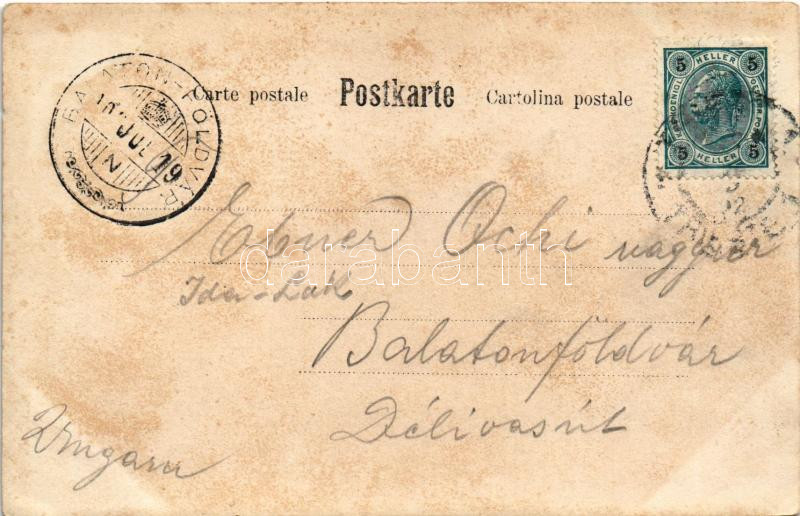 BALATON-FÖLDVÁR
JUL 19
N
Carte postale Postkarte Cartolina postale
5 HELLER 5
5 HELLER 5
Ebner Ocki nagysár
darabanth
Ida-Lak
Balatonföldvár
Délivasút
Ungara